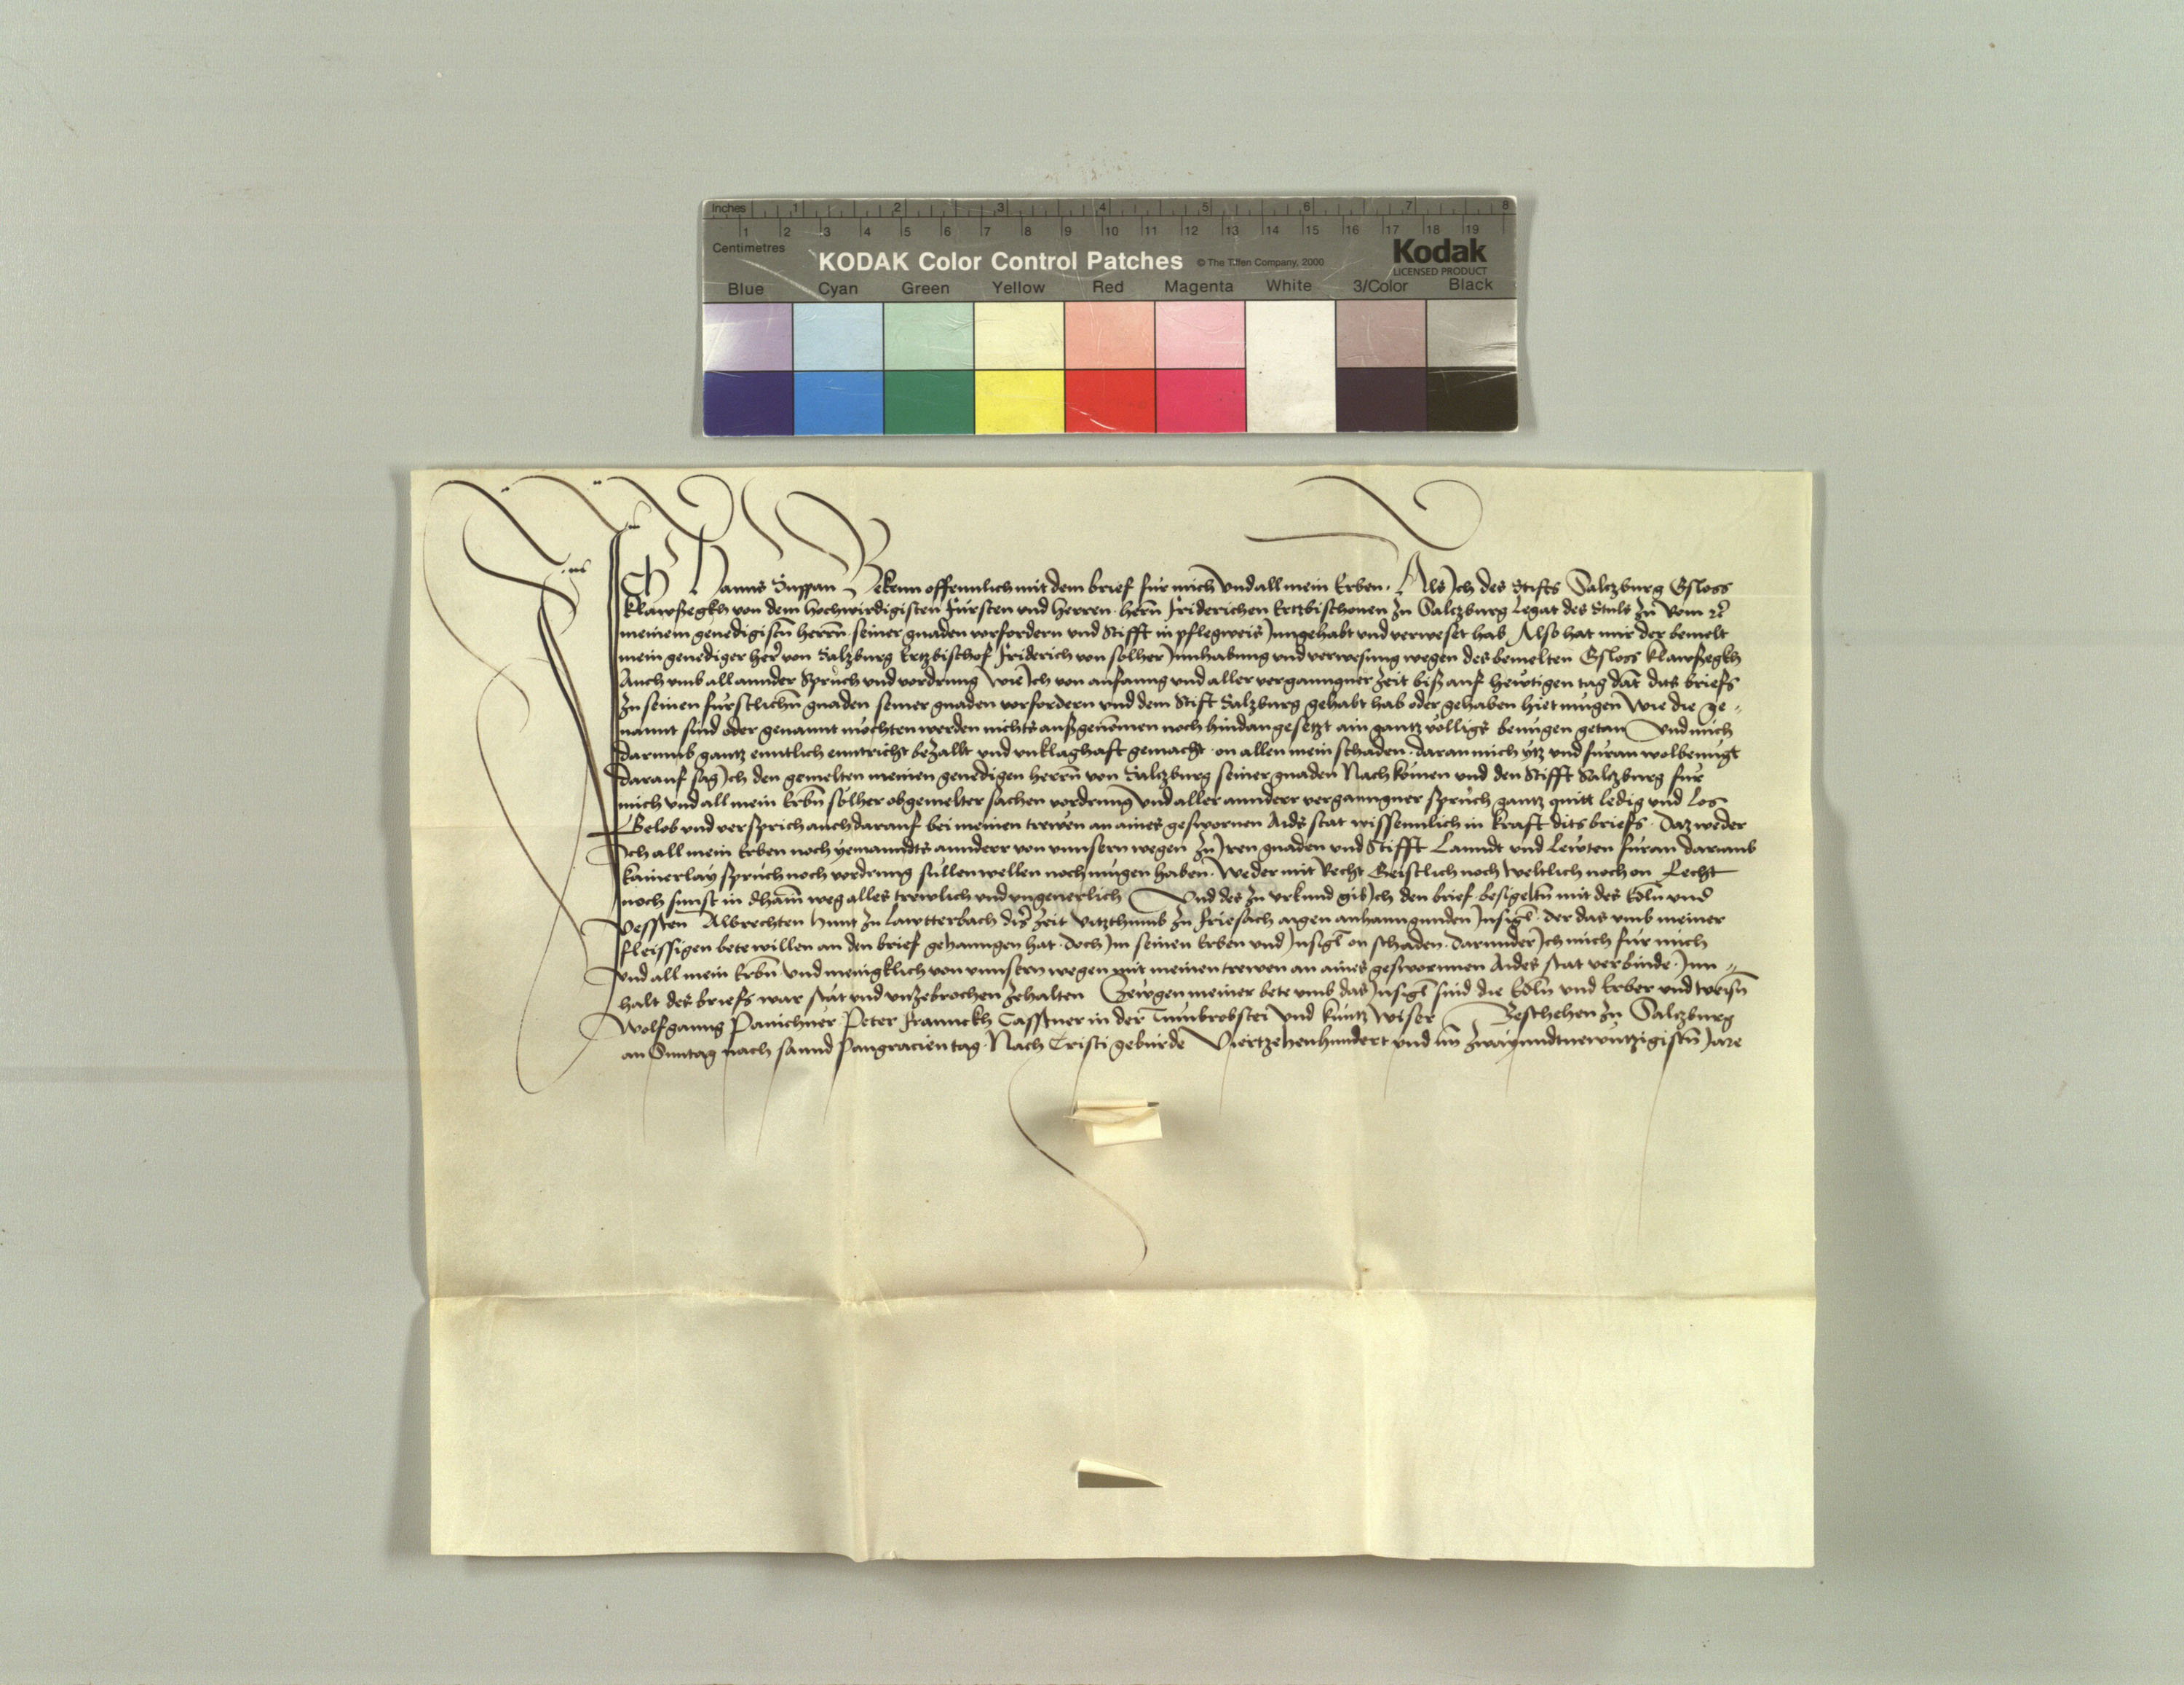 Inches 1 2 3 4 5 6 7 8
1 2 3 4 5 6 7 8 9 10 11 12 13 14 15 16 17 18 19
Centimetres
KODAK Color Control Patches © The Tiffen Company, 2000 Kodak
LICENSED PRODUCT
Blue Cyan Green Yellow Red Magenta White 3/Color Black
Ich Hanns Suppan Bekenn offennlich mit dem brief fur mich vnd all mein Erben. Als Ich des Stifts Salczburg Gsloss
klawsegkh von dem hochwirdigisten fursten vnd herren. hern friderichen Ertzbischouen zu Salczburg Legat des Stuls zu Rom
meinem genedigistn herrn. seiner gnaden vorfordern vnd Stifft in pflegweis Inngehabt vnd verweset hab Also hat mir der bemelt
mein genediger her von Salzburg Ertzbischof friderich von solher Innhabung vnd verwesung wegen des bemelten Gsloss klawsegkh
Auch vmb all annder Spruch vnd vordrung wie Ich von anfanng vnd aller verganngner zeit biß auf hewtigen tag dat des briefs
zu seinen furstlichn gnaden seiner gnaden vorfordern vnd dem Stift Salzburg gehabt hab oder gehaben hiet mugen wie die ge-
nannt sind oder genannt mochten werden nichts außgenomen noch hindangesetzt ain gantz volligs benugen getan Vnd mich
darumb gantz enntlich enntricht bezallt vnd vnklaghaft gemacht. on allen mein schaden. daran mich ytz vnd furan wolbenugt
darauf sag Ich den gemelten meinen genedigen herrn von Salczburg seiner gnaden Nachkomen vnd den Stifft Salczburg fur
mich vnd all mein Erbn solher obgemelter sachen vordrung Vnd aller annderr verganngner spruch gantz quitt ledig vnd Los
Gelob vnd versprich auch darauf bei meinen trewen an aines geswornen Aids stat wissennlich in kraft dits briefs. Daz weder
Ich all mein Erben noch yemanndts annderr von vnnsern wegen zu Iren gnaden vnd Stifft Lanndt vnd Lewten furan darumb
kainerlay spruch noch vordrung sullen wellen noch mugen haben. Weder mit Recht Geistlich noch weltlich noch on Recht
noch sunst in dhain weg alles trewlich vnd vngeuerlich Vnd des zu vrkund gib Ich den brief besigeltn mit des Edln vnd
Vessten Albrechten hunt zu Lawtterbach diser zeit Vitzthumb zu friesach aigen anhanngunden Insigl. der das vmb meiner
fleissigen bete willen an den brief gehanngen hat. doch Im seinen Erben vnd Insigl on schaden. darunder Ich mich fur mich
vnd all mein Erbn vnd menigklich von vnnsern wegen mit meinen trewen an aines geswornnen Aides stat verbinde. Inn-
halt des briefs war stat vnd vnzebrochen zehalten Zewgen meiner bete vmb das Insigl sind die Edln vnd Erber vnd weisn
Wolfganng Panichner Peter Franckh Casstner in der Tumbrobstei Vnd kuntz wiser Beschehen zu Salczburg
an Sunntag nach sannd Pangracien tag. Nach Cristi geburde Viertzehenhundert vnd im zwayundtnewntzigistn Jare